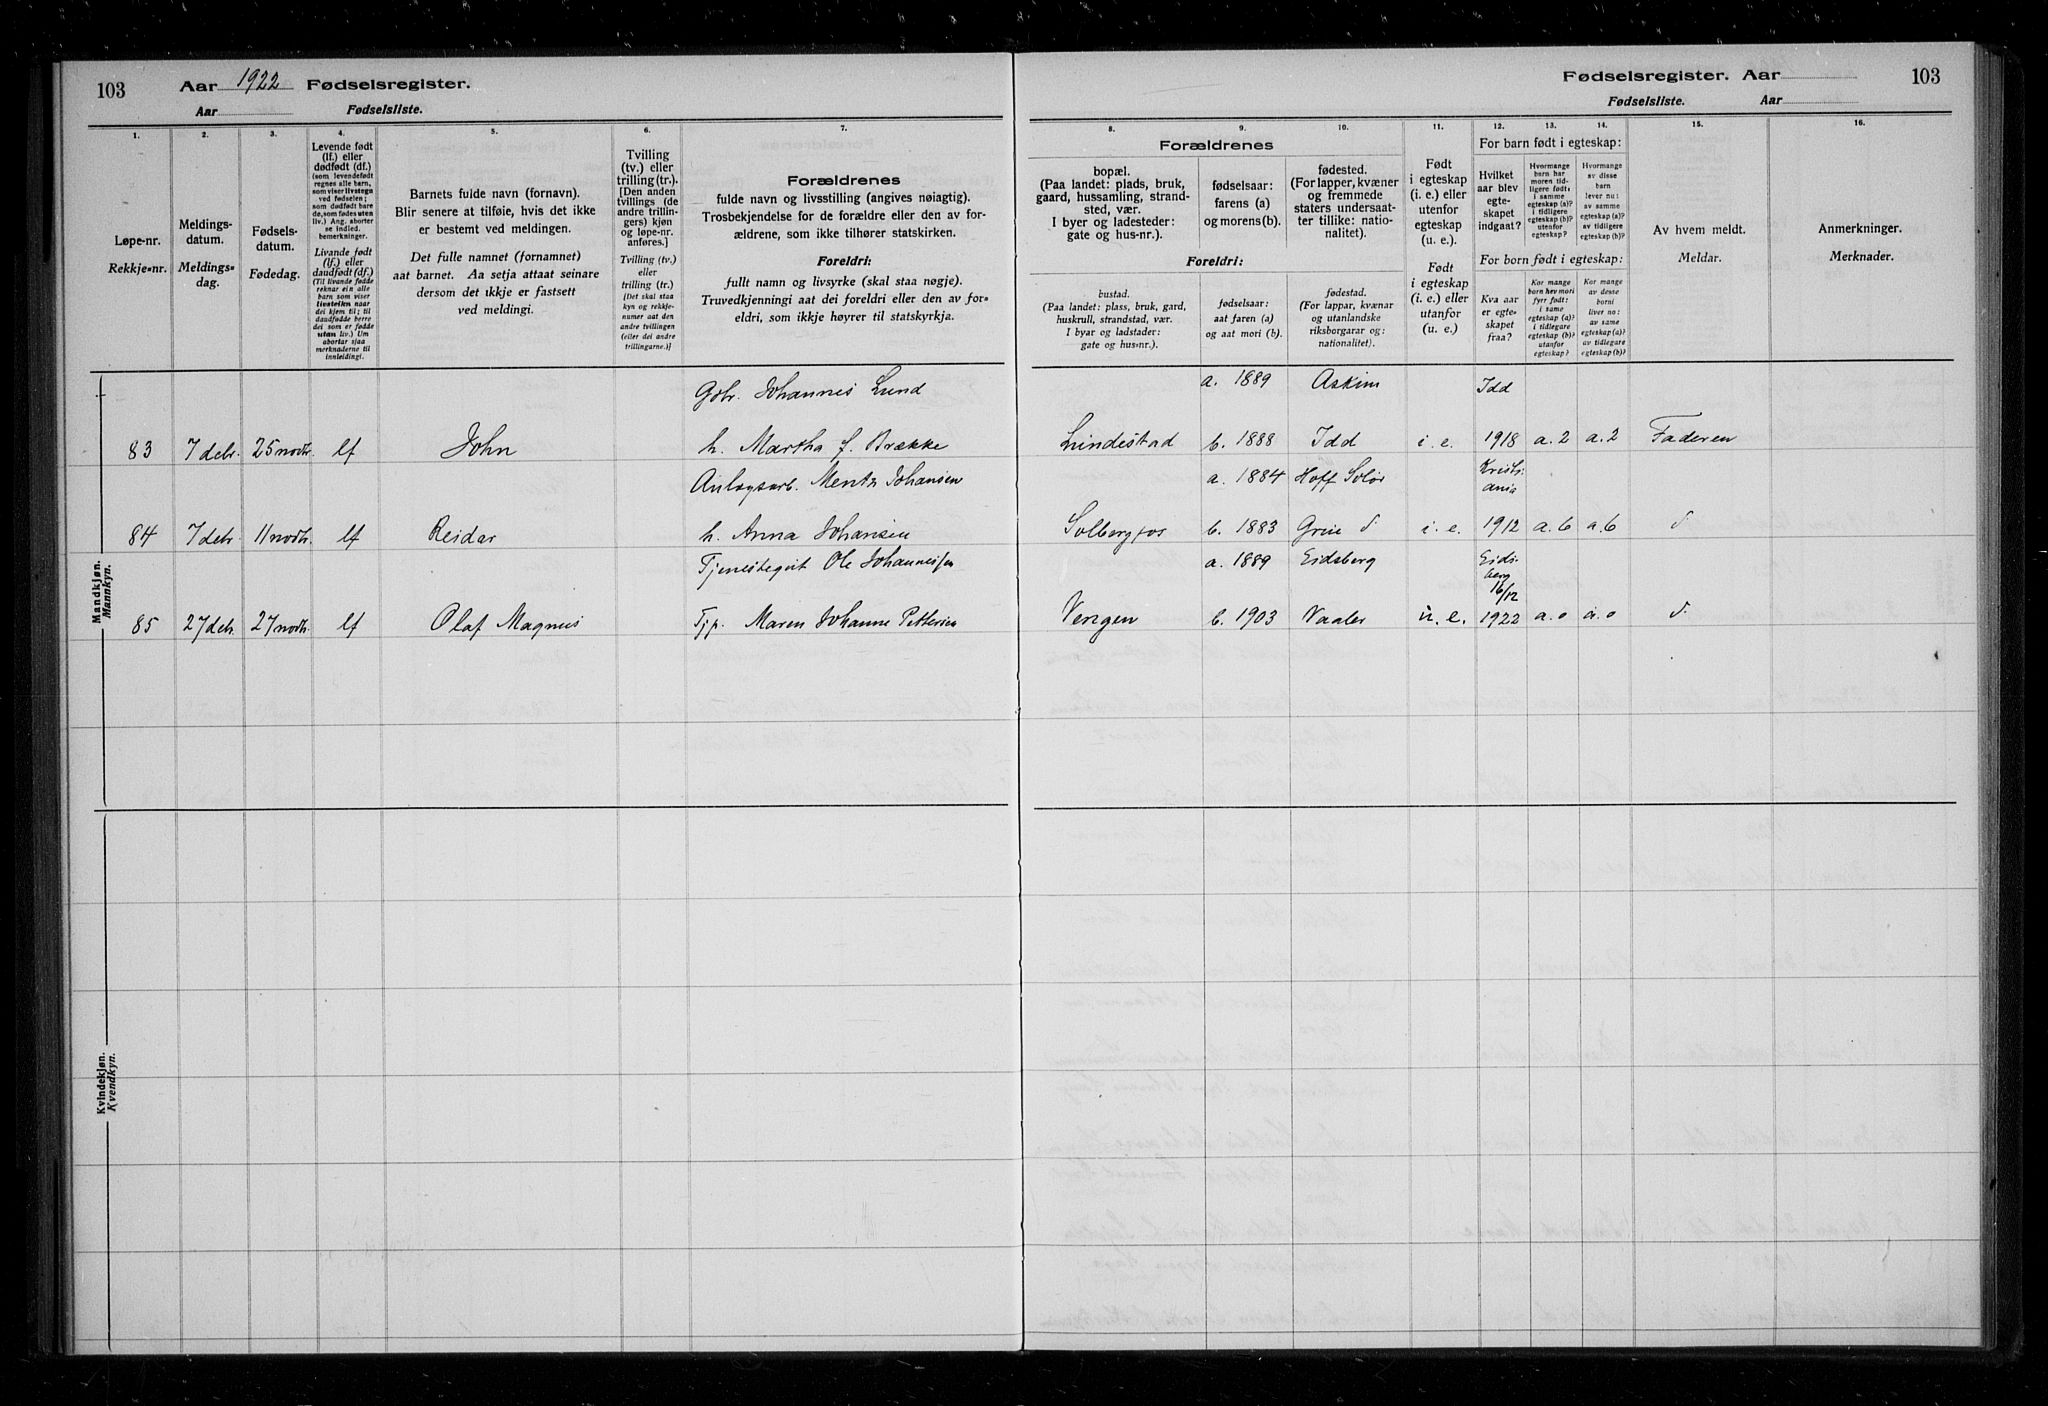 103 Aar 1922 Fødselsregister.
Aar Fødselsliste.
Fødselsregister. Aar 103
Fødselsliste. Aar
1. 2. 3. 4. 5. 6. 7.
8. 9. 10. 11. 12. 13. 14. 15. 16.
Løpe-nr.
Rekkje-nr.
Meldings-
datum.
Meldings-
dag.
Fødsels-
datum.
Fødedag.
Levende født
(lf.) eller
dødfødt (df.)
(som levendefødt
regnes alle barn,
som viser livstegn
ved fødselen;
som dødfødt bare
de, som fødes uten
liv.) Ang. aborter
se indled.
bemerkninger.
Livande født
(lf.) eller
daudfødt (df.)
(Til livande fødde
reknar ein alle
barn som viser
livsteikn naar
dei kjem til; til
daudfødde berre
dei som er fødde
utan liv.) Um
abortar sjaa
merknaderne til
innleidingi.
Barnets fulde navn (fornavn).
Blir senere at tilføie, hvis det ikke
er bestemt ved meldingen.
Det fulle namnet (fornamnet)
aat barnet. Aa setja attaat seinare
dersom det ikkje er fastsett
ved meldingi.
Tvilling
(tv.) eller
trilling (tr.).
[Den anden
tvillings (de
andre trillin-
gers) kjøn
og løpe-nr.
anføres.]
Tvilling (tv.)
eller
trilling (tr.)
[Det skal staa
kyn og rekkje-
numer aat den
andre tvillingen
(eller dei andre
trillingarne.)]
Forældrenes
fulde navn og livsstilling (angives nøiagtig).
Trosbekjendelse for de forældre eller den av for-
ældrene, som ikke tilhører statskirken.
Foreldri:
fullt namn og livsyrke (skal staa nøgje).
Truvedkjenningi aat dei foreldri eller den av for-
eldri, som ikkje høyrer til statskyrkja.
Forældrenes
bopæl.
(Paa landet: plads, bruk,
gaard, hussamling, strand-
sted, vær.
I byer og ladesteder:
gate og hus-nr.).
fødselsaar:
farens (a)
og morens (b).
fødested.
(For lapper, kvæner
og fremmede
staters undersaat-
ter tillike: natio-
nalitet).
Foreldri:
bustad.
(Paa landet: plass, bruk, gard,
huskrull, strandstad, vær.
I byar og ladstader:
gate og hus-nr.).
fødselsaar:
aat faren (a)
og aat mori (b).
fødestad.
(For lappar, kvænar
og utanlandske
riksborgarar og:
nationalitet).
Født
i egteskap
(i. e.) eller
utenfor
egteskap
(u. e.).
Født
i egteskap
(i. e.) eller
utanfor
(u. e.)
For barn født i egteskap:
Hvilket
aar blev
egte-
skapet
indgaat?
Hvormange
barn har
moren tid-
ligere født:
i samme
egteskap (a)?
i tidligere
egteskap (b)?
utenfor
egteskap?
Hvormange
av disse
barn
lever nu:
av samme
egteskap (a)?
av tidligere
egteskap (b)?
For born født i egteskap:
Kva aar
er egte-
skapet
fraa?
Kor mange
born hev mori
fyrr født:
i same
egteskap (a)?
i tidlegare
egteskap (b)?
utanfor
egteskap?
Kor mange
av desse
borni
liver no:
av same
egteskap (a)?
av tidlegare
egteskap (b)?
Av hvem meldt.
Meldar.
Anmerkninger.
Merknader.
Mandkjøn.
Mannkyn.
Gbr. Johannes Lund a. 1889 Askim Idd
83 7 debr. 25 novbr. lf John h. Martha f. Brække Lundestad b. 1888 Idd i. e. 1918 a. 2 a. 2 Faderen
Anlægsarb. Mentz Johansen a. 1884 Hoff Solør Kristi-
ania
84 7 debr. 11 novbr. lf Reidar h. Anna Johansen Solbergfos b. 1883 Grue d. i. e. 1912 a. 6 a. 6 d.
Tjenestegut Ole Johannessen a. 1889 Eidsberg Eids-
berg
16/12
85 27 debr. 27 novbr. lf Olaf Magnus Tjp. Maren Johanne Pettersen b. 1903 Vaaler u. e. 1922 a. 0 a. 0 d.
Kvindekjøn.
Kvendkyn.